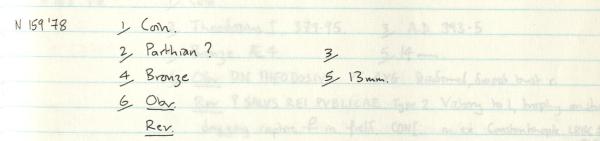 N 159'78 1, Coin.
2, Parthian ? 3,
4, Bronze 5, 13mm.
6, Obv.
Rev.